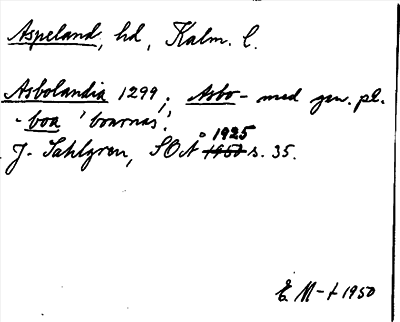 Aspeland, hd, Kalm. l.
Asbolandia 1299; Asbo- med gen. pl.
-boa 'boarnas'.
J. Sahlgren, SOÅ 1925 s. 35.
E. M-t 1950